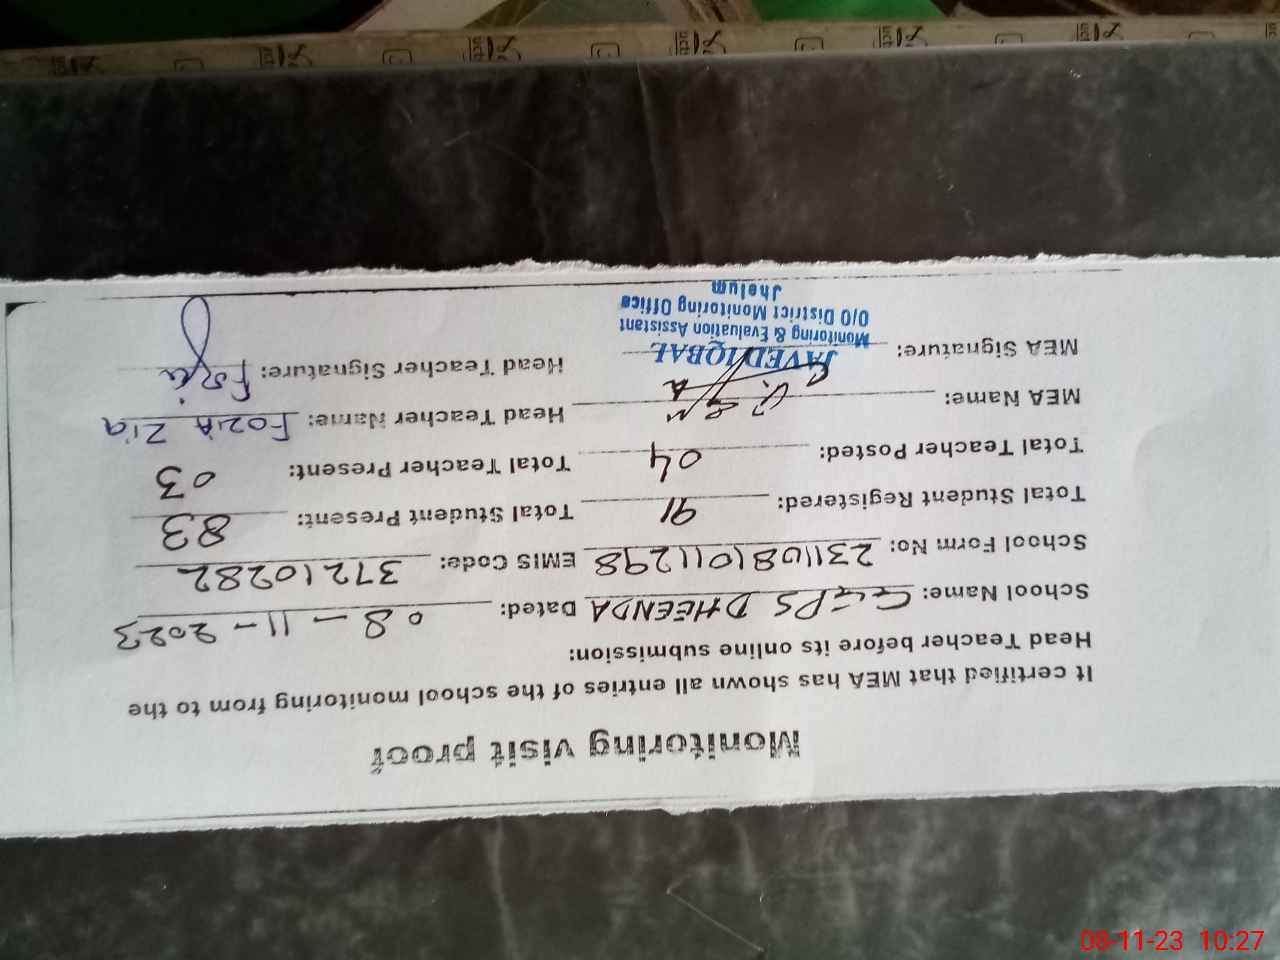 Monitoring visit proof
It certified that MEA has shown all entries of the school monitoring from to the
Head Teacher before its online submission:
School Name: GGPS DHEENDA Dated: 08-11-2023
School Form No: 231108101011298 EMIS Code: 37210282
Total Student Registered: 91 Total Student Present: 83
Total Teacher Posted: 04 Total Teacher Present: 03
MEA Name: Head Teacher Name: FOZIA ZIA
MEA Signature: Head Teacher Signature: Fozia
JAVED IQBAL
Monitoring & Evaluation Assistant
O/O District Monitoring Office
Jhelum
08-11-23 10:27